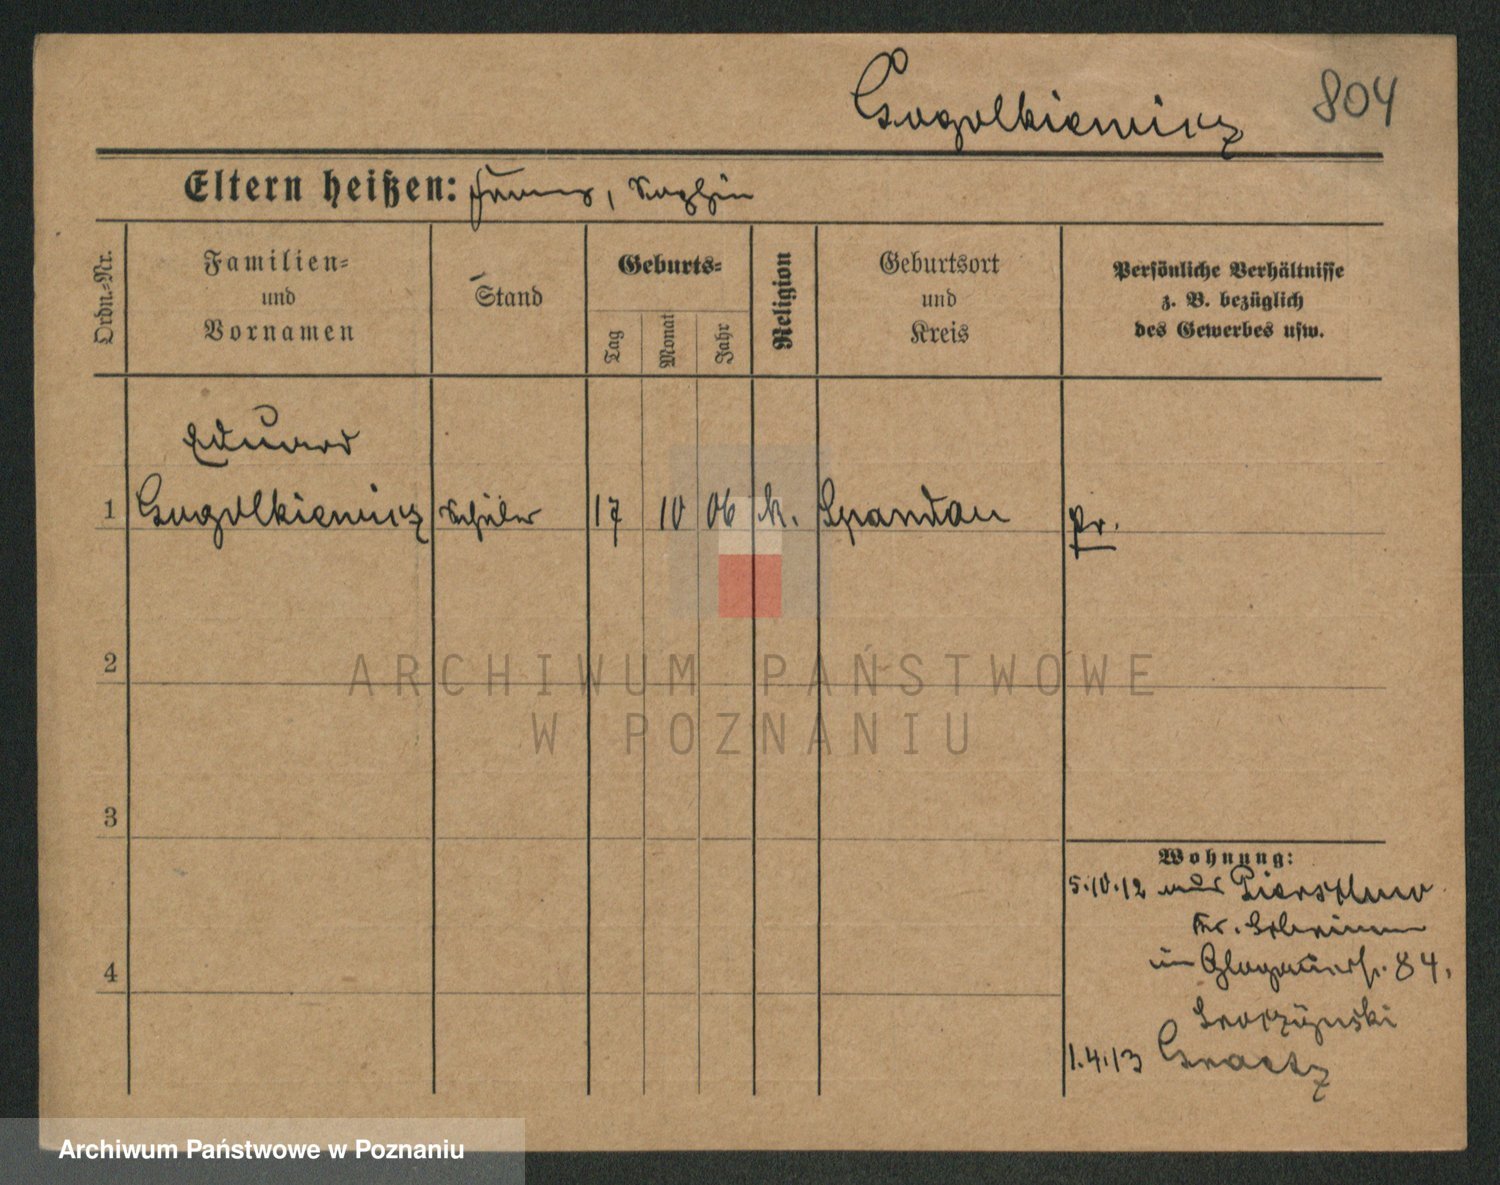 Gogolkiewicz 804
Eltern heißen: Franz, Sophie
Ordn.-Nr.
Familien-
und
Vornamen
Stand
Geburts-
Tag
Monat
Jahr
Religion
Geburtsort
und
Kreis
Persönliche Verhältnisse
z. B. bezüglich
des Gewerbes usw.
Eduard
1 Gogolkiewicz Schüler 17 10 06 k. Spandau Pr.
2
ARCHIWUM PAŃSTWOWE
W POZNANIU
3
Wohnung:
5.10.12 aus
Kr.
in Glogauerstr. 84.
4
1.4.13 Graetz
Archiwum Państwowe w Poznaniu